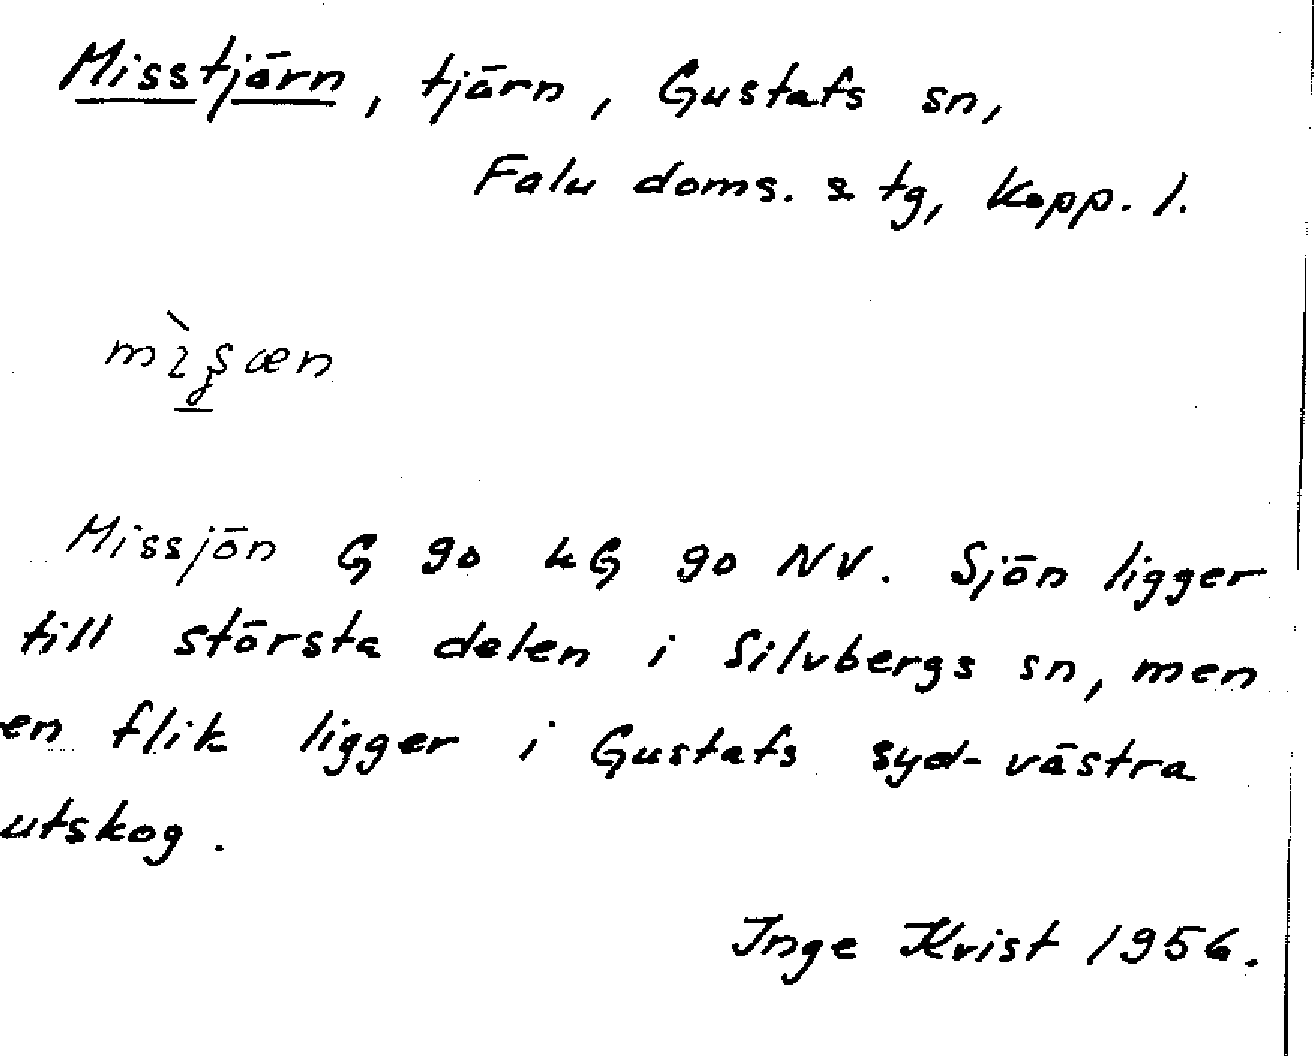 Misstjärn, tjärn, Gustafs sn,
Falu doms. s tg, Kopp. l.
Missjön G 90 kG 90 NV. Sjön ligger
till största delen i Silvbergs sn, men
en flik ligger i Gustafs syd-västra
utskog.
Inge Kvist 1956.